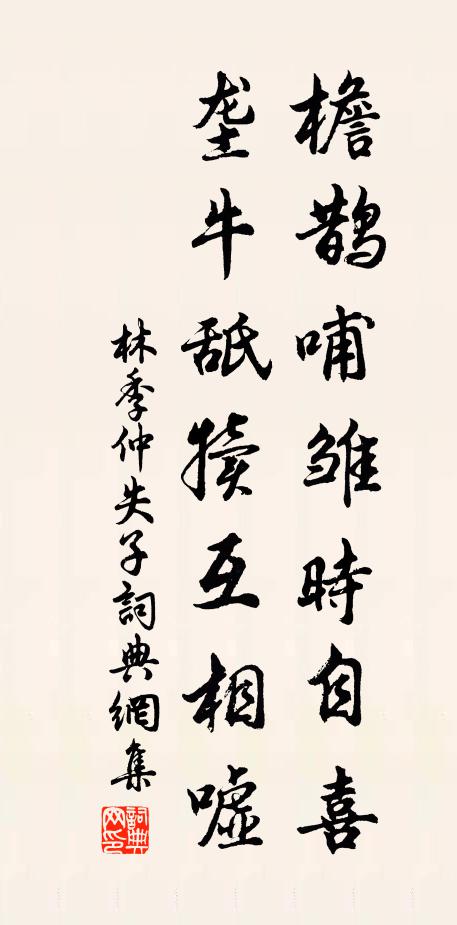 檐鹊哺雏時自喜
垄牛舐犢互相嘘
林季仲失子詞典網集
詞典网印